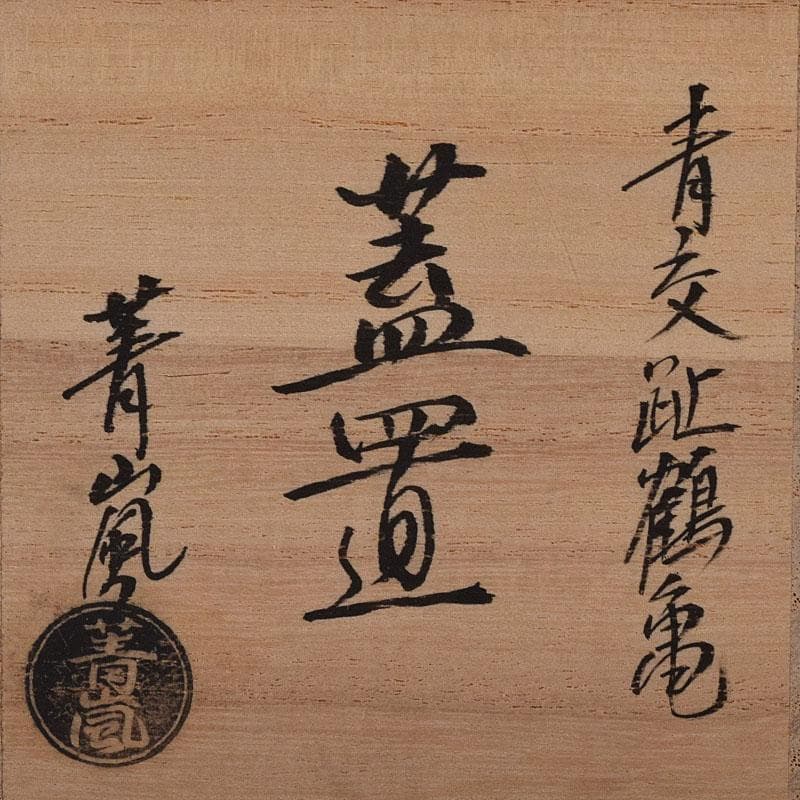 青交趾鶴亀
蓋置
菁嵐
菁嵐